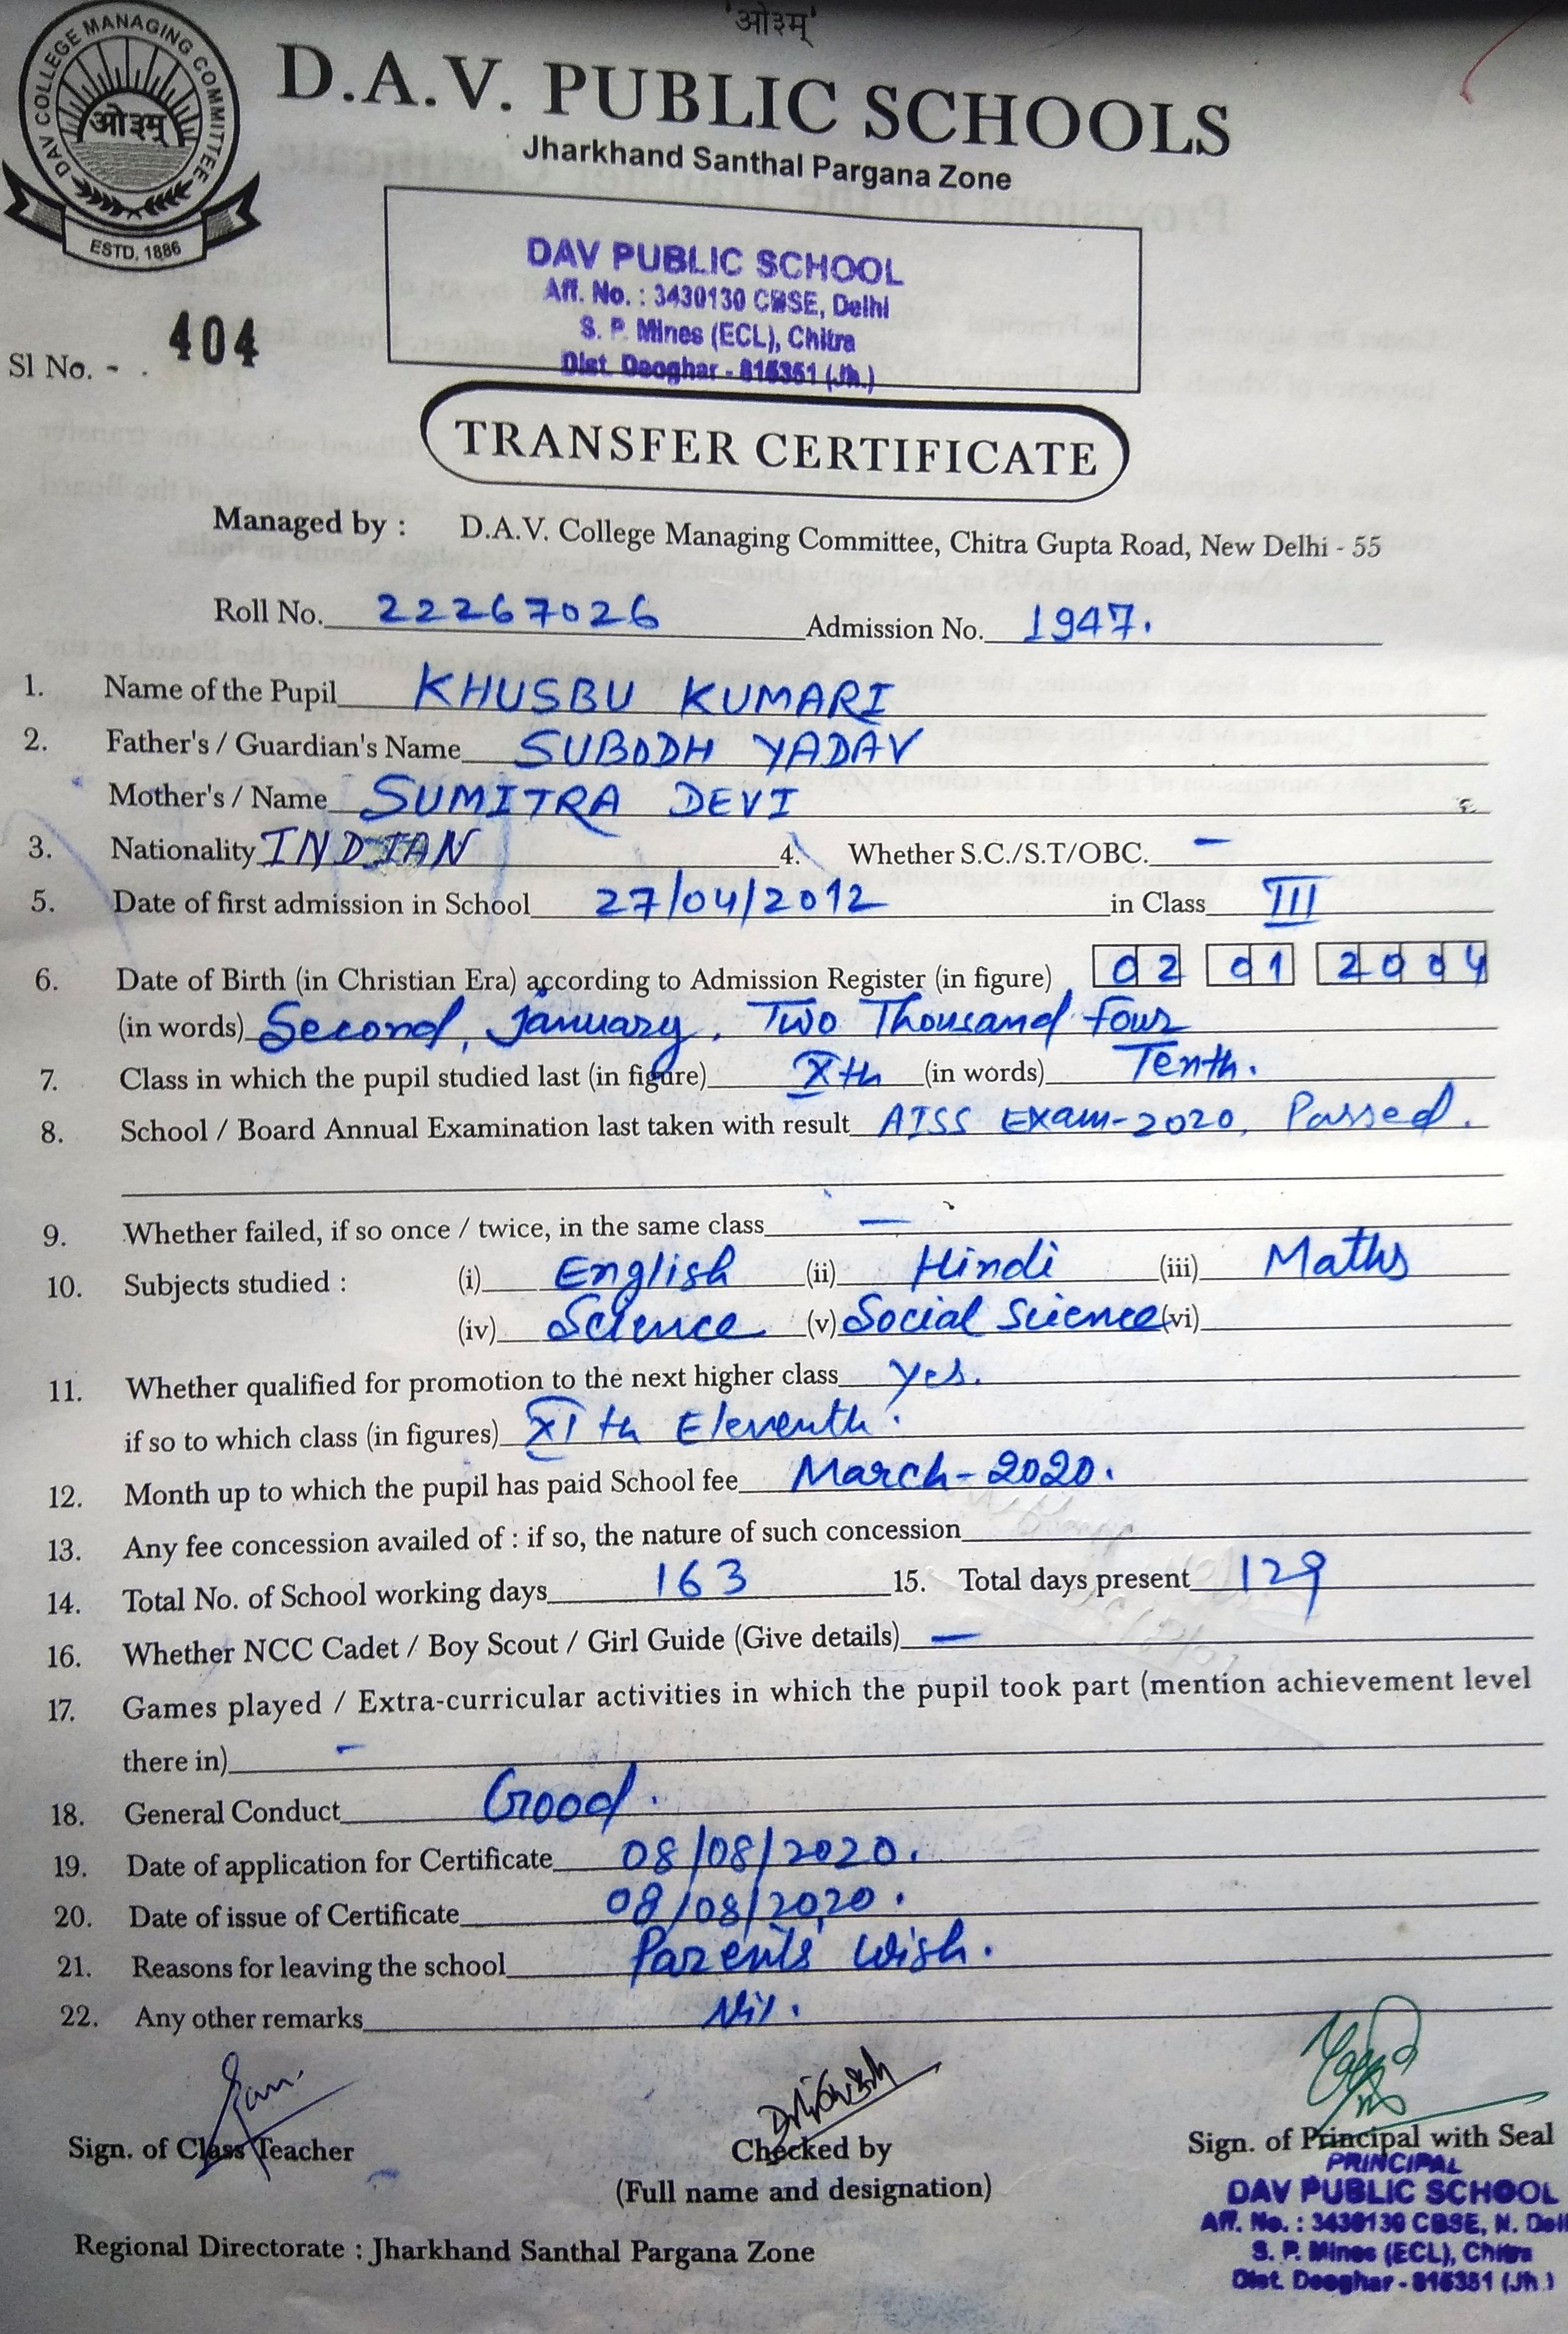 'ओ३म्'
DAV COLLEGE MANAGING COMMITTEE
ओ३म्
ESTD, 1886
D.A.V. PUBLIC SCHOOLS
Jharkhand Santhal Pargana Zone
DAV PUBLIC SCHOOL
Aff. No. : 3430130 CBSE, Delhi
S. P. Mines (ECL), Chitra
Dist. Deoghar - 815351 (Jh.)
Sl No. - . 404
TRANSFER CERTIFICATE
Managed by : D.A.V. College Managing Committee, Chitra Gupta Road, New Delhi - 55
Roll No. 22267026 Admission No. 1947.
1. Name of the Pupil KHUSBU KUMARI
2. Father's / Guardian's Name SUBODH YADAV
Mother's / Name SUMITRA DEVI
3. Nationality INDIAN 4. Whether S.C./S.T/OBC. —
5. Date of first admission in School 27/04/2012 in Class III
6. Date of Birth (in Christian Era) according to Admission Register (in figure) 02 01 2004
(in words) Second, January, Two Thousand Four
7. Class in which the pupil studied last (in figure) Xth (in words) Tenth.
8. School / Board Annual Examination last taken with result AISS Exam-2020, Passed.
9. Whether failed, if so once / twice, in the same class —
10. Subjects studied : (i) English (ii) Hindi (iii) Maths
(iv) Science (v) Social Science (vi)
11. Whether qualified for promotion to the next higher class Yes.
if so to which class (in figures) XIth Eleventh.
12. Month up to which the pupil has paid School fee March-2020.
13. Any fee concession availed of : if so, the nature of such concession
14. Total No. of School working days 163 15. Total days present 129
16. Whether NCC Cadet / Boy Scout / Girl Guide (Give details) —
17. Games played / Extra-curricular activities in which the pupil took part (mention achievement level
there in) -
18. General Conduct Good.
19. Date of application for Certificate 08/08/2020.
20. Date of issue of Certificate 08/08/2020.
21. Reasons for leaving the school Parents' Wish.
22. Any other remarks Nil.
Sign. of Class Teacher Checked by Sign. of Principal with Seal
(Full name and designation)
PRINCIPAL
DAV PUBLIC SCHOOL
Aff. No. : 3430130 CBSE, N. Delhi
S. P. Mines (ECL), Chitra
Dist. Deoghar - 815351 (Jh.)
Regional Directorate : Jharkhand Santhal Pargana Zone